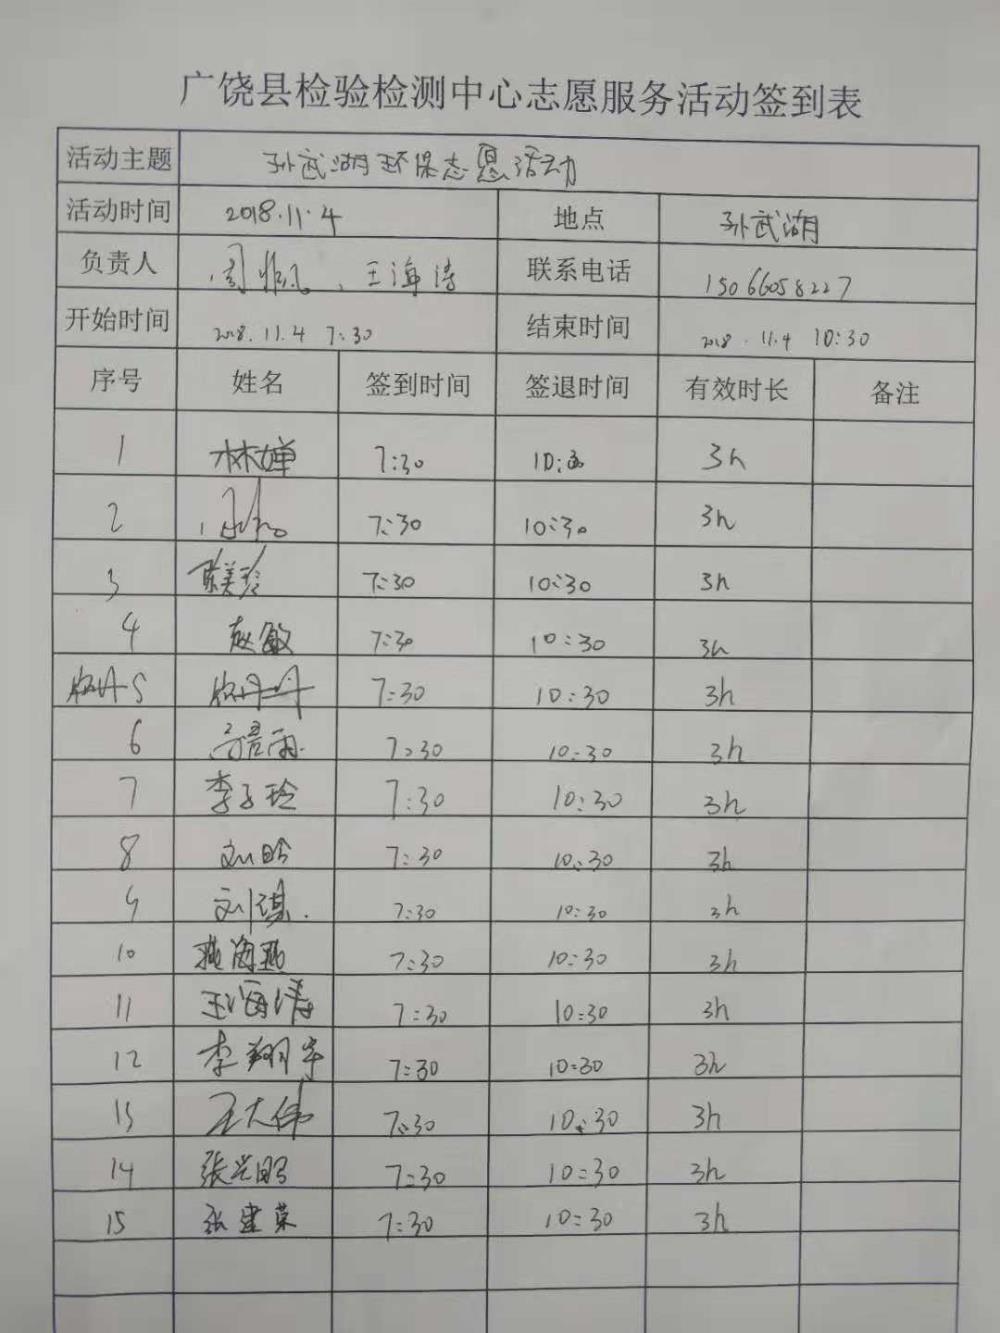 广饶县检验检测中心志愿服务活动签到表
活动主题 孙武湖环保志愿活动
活动时间 2018.11.4 地点 孙武湖
负责人 、王海涛 联系电话 15066058227
开始时间 2018.11.4 7:30 结束时间 2018.11.4 10:30
序号 姓名 签到时间 签退时间 有效时长 备注
1 林婵 7:30 10:30 3h
2 7:30 10:30 3h
3 陈美玲 7:30 10:30 3h
4 赵敏 7:30 10:30 3h
5 7:30 10:30 3h
6 7:30 10:30 3h
7 李子玲 7:30 10:30 3h
8 刘盼 7:30 10:30 3h
9 刘琪 7:30 10:30 3h
10 燕海燕 7:30 10:30 3h
11 王海涛 7:30 10:30 3h
12 李翔宇 7:30 10:30 3h
13 王大伟 7:30 10:30 3h
14 张兴明 7:30 10:30 3h
15 张建荣 7:30 10:30 3h